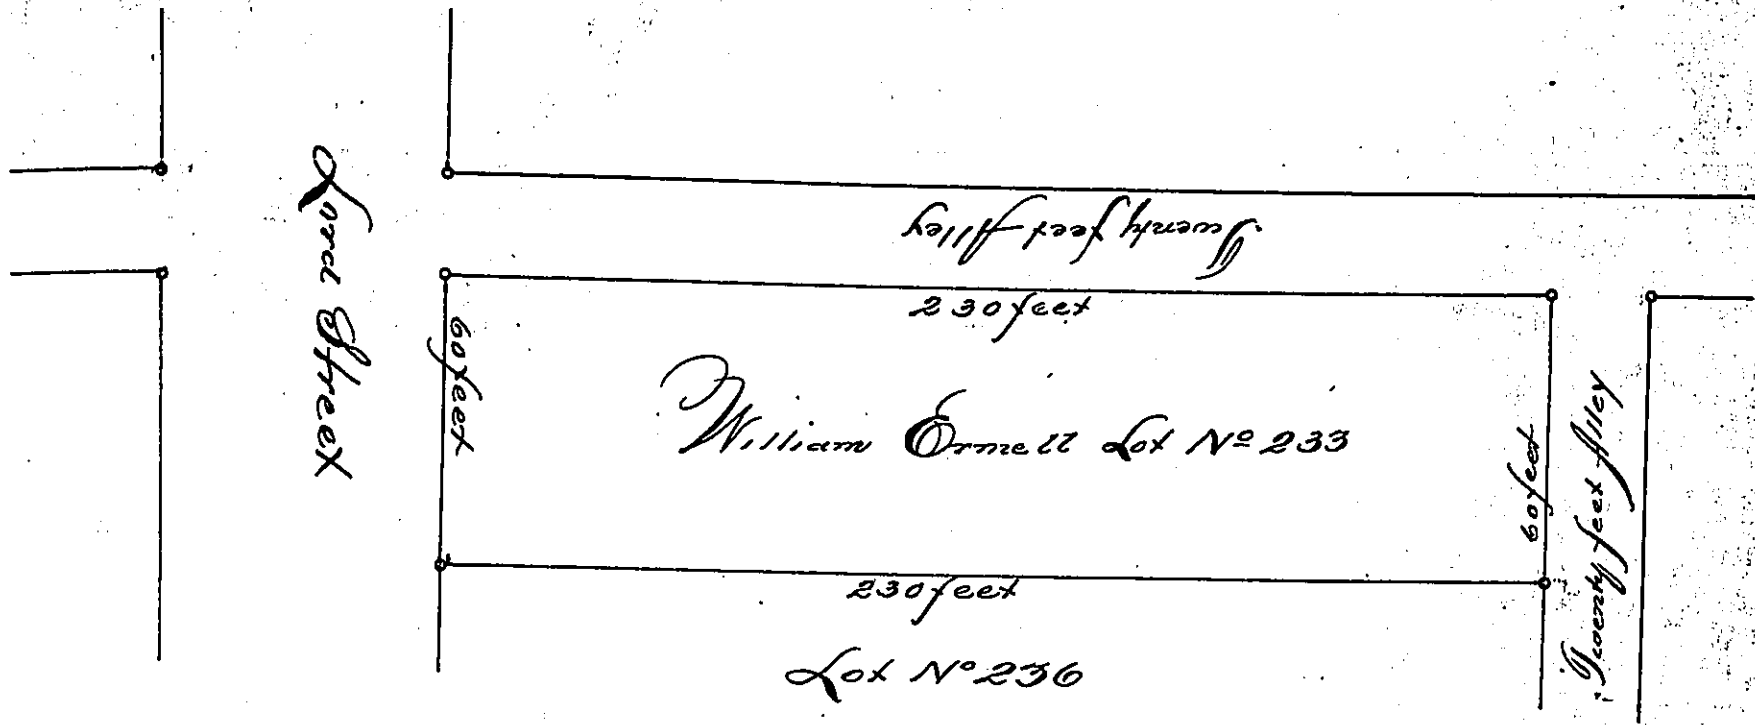 Lord Street
Twenty feet Alley
230 feet
60 feet
William Ermell Lot Nº 233
60 feet
Twenty feet Alley
230 feet
Lot Nº 236